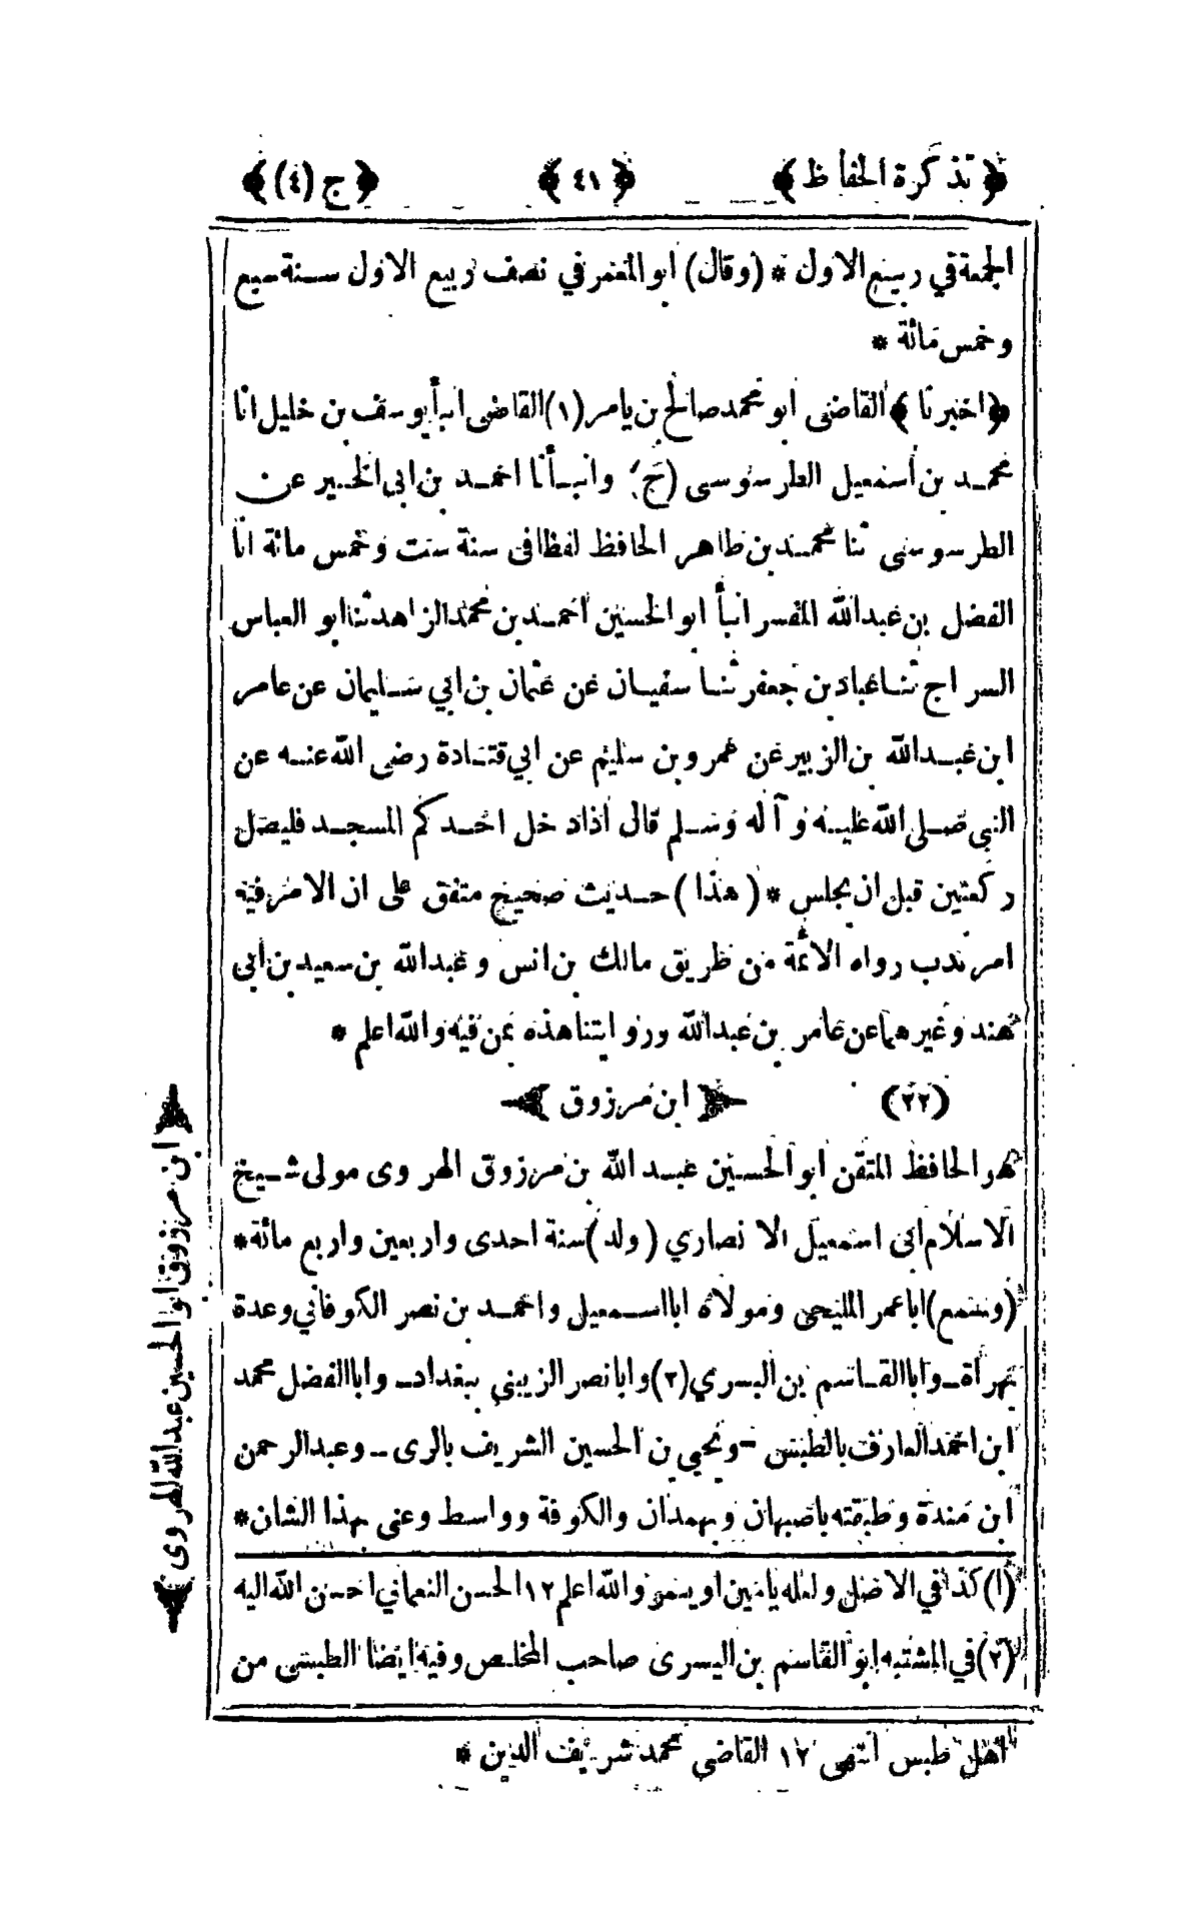 ﴿ تذكرة الحفاظ ﴾ ﴿ ٤١ ﴾ ﴿ ج (٤) ﴾
الجمعة في ربيع الاول * (وقال) ابو المعمر في نصف ربيع الاول سنة سبع
وخمس مائة *
﴿ اخبرنا ﴾ القاضى ابو محمد صالح بن يامر (١) القاضى انبأ يوسف بن خليل انا
محمد بن اسمعيل الطرسوسى (ح) وانبأنا احمد بن ابى الخير عن
الطرسوسى ثنا محمد بن طاهر الحافظ لفظا فى سنة ست وخمس مائة انا
الفضل بن عبد الله المفسر انبأ ابو الحسين احمد بن محمد الزاهد ثنا ابو العباس
السراج ثنا عباد بن جعفر ثنا سفيان عن عثمان بن ابي سليمان عن عامر
ابن عبد الله بن الزبير عن عمرو بن سليم عن ابي قتادة رضى الله عنه عن
النبى صلى الله عليه وآله وسلم قال اذا دخل احدكم المسجد فليصل
ركعتين قبل ان يجلس * (هذا) حديث صحيح متفق على ان الامر فيه
امر ندب رواه الائمة من طريق مالك بن انس وعبد الله بن سعيد بن ابى
هند وغيرهما عن عامر بن عبد الله وروايتنا هذه بمن فيه والله اعلم *
(٢٢) ﴿ ابن مرزوق ﴾
هو الحافظ المتقن ابو الحسين عبد الله بن مرزوق الهروى مولى شيخ
الاسلام ابى اسمعيل الانصاري (ولد) سنة احدى واربعين واربع مائة *
(وسمع) ابا عمر المليحى ومولاه ابا اسمعيل واحمد بن نصر الكوفاني وعدة
بهراة ــ وابا القاسم بن البسري (٢) وابا نصر الزينبي ببغداد ــ وابا الفضل محمد
ابن احمد العارف بالطبس ــ ويحيى بن الحسين الشريف بالرى ــ وعبد الرحمن
ابن مندة وطبقته باصبهان وبهمذان والكوفة وواسط وعنى بهذا الشان *
(١) كذا في الاصل ولعله يامين او يسمو والله اعلم ١٢ الحسن النعماني احسن الله اليه
(٢) في المشتبه ابو القاسم بن اليسرى صاحب المخلص وفيه ايضا الطبسى من
اهل طبس انتهى ١٢ القاضي محمد شريف الدين *
﴿ ابن مرزوق ابو الحسين عبد الله الهروى ﴾